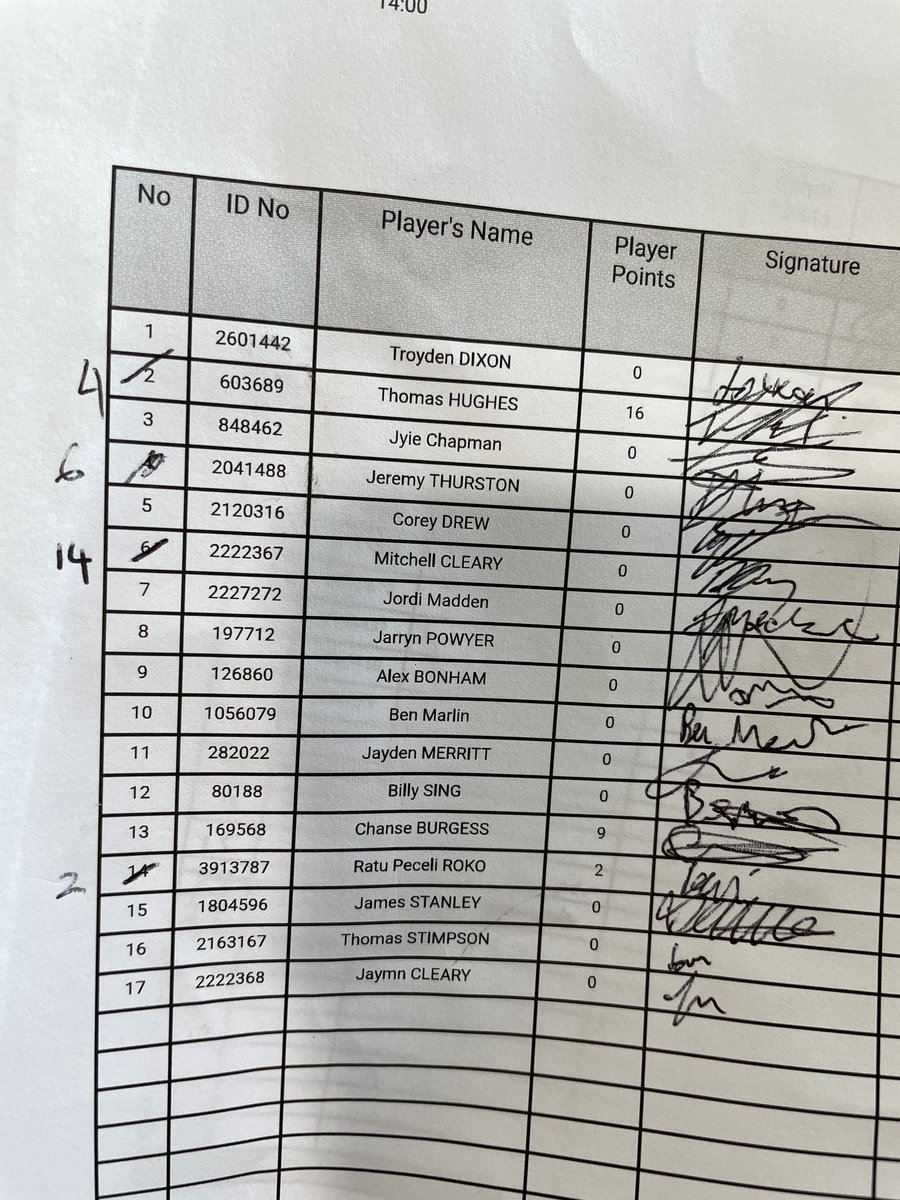 14:00
No ID No Player's Name Player Points Signature
1 2601442 Troyden DIXON 0
4 2 603689 Thomas HUGHES 16
3 848462 Jyie Chapman 0
6 2041488 Jeremy THURSTON 0
5 2120316 Corey DREW 0
14 6 2222367 Mitchell CLEARY 0
7 2227272 Jordi Madden 0
8 197712 Jarryn POWYER 0
9 126860 Alex BONHAM 0
10 1056079 Ben Marlin 0 Ben
11 282022 Jayden MERRITT 0
12 80188 Billy SING 0
13 169568 Chanse BURGESS 9
2 14 3913787 Ratu Peceli ROKO 2
15 1804596 James STANLEY 0
16 2163167 Thomas STIMPSON 0 tom
17 2222368 Jaymn CLEARY 0